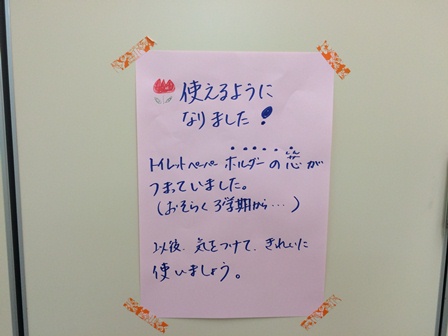 使えるように
なりました!
トイレットペーパー ホルダーの芯が
つまっていました。
(おそらく3学期から…)
以後、気をつけて、きれいに
使いましょう。